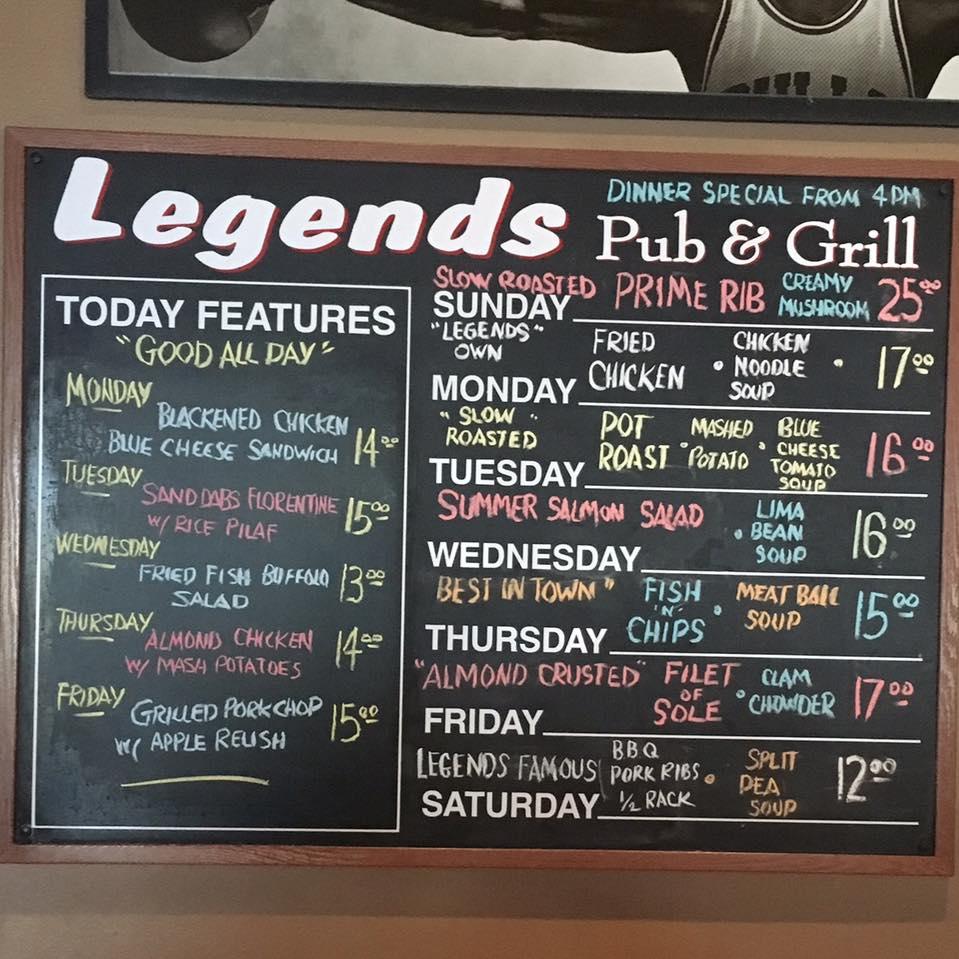 BULLS
Legends
DINNER SPECIAL FROM 4PM
Pub & Grill
TODAY FEATURES
"GOOD ALL DAY"
MONDAY
BLACKENED CHICKEN
BLUE CHEESE SANDWICH 14⁰⁰
TUESDAY
SANDDABS FLORENTINE
W/ RICE PILAF 15⁰⁰
WEDNESDAY
FRIED FISH BUFFOLO
SALAD 13⁰⁰
THURSDAY
ALMOND CHICKEN
W/ MASH POTATOES 14⁰⁰
FRIDAY
GRILLED PORK CHOP
W/ APPLE RELISH 15⁰⁰
SLOW ROASTED PRIME RIB CREAMY MUSHROOM 25⁰⁰
SUNDAY
"LEGENDS" OWN FRIED CHICKEN • CHICKEN NOODLE SOUP • 17⁰⁰
MONDAY
"SLOW ROASTED" POT ROAST • MASHED POTATO • BLUE CHEESE TOMATO SOUP 16⁰⁰
TUESDAY
SUMMER SALMON SALAD • LIMA BEAN SOUP 16⁰⁰
WEDNESDAY
BEST IN TOWN" FISH 'N' CHIPS • MEAT BALL SOUP 15⁰⁰
THURSDAY
"ALMOND CRUSTED" FILET OF SOLE • CLAM CHOWDER 17⁰⁰
FRIDAY
LEGENDS FAMOUS BBQ PORK RIBS 1/2 RACK • SPLIT PEA SOUP 12⁰⁰
SATURDAY